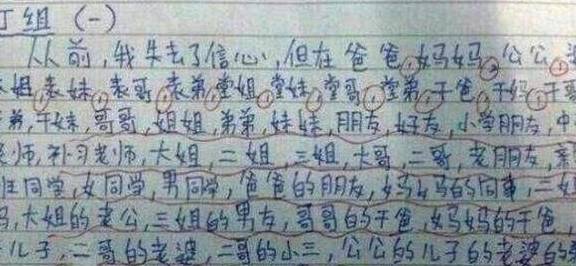 丁组 (一)
从前,我失去了信心,但在爸爸,妈妈,公公,
表姐,表妹,表哥,表弟,堂姐,堂妹,堂哥,堂弟,干爸,干妈,干哥
弟,干妹,哥哥,姐姐,弟弟,妹妹,朋友,好友,小学朋友,中
老师,补习老师,大姐,二姐,三姐,大哥,二哥,老朋友,亲
性同学,女同学,男同学,爸爸的朋友,妈妈的同事,二姐
妈,大姐的老公,三姐的男友,哥哥的干爸,妈妈的干爸,
儿子,二哥的老婆,二哥的小三,公公的儿子的老婆的